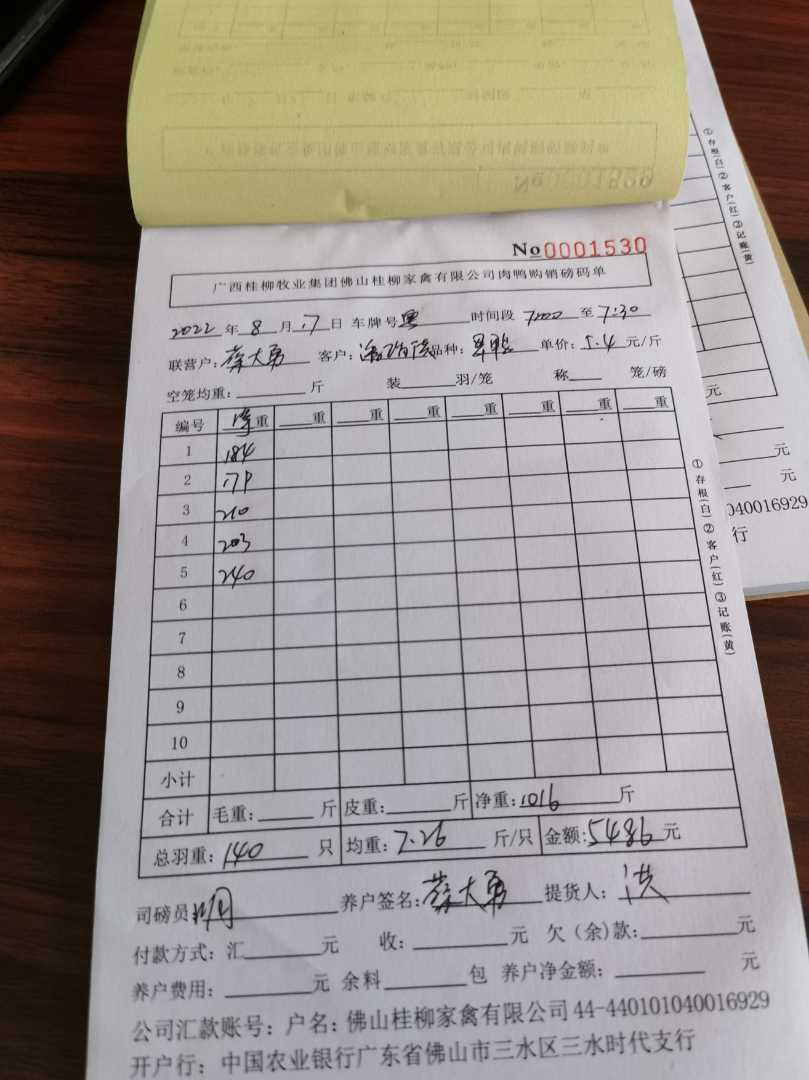 No0001530
广西桂柳牧业集团佛山桂柳家禽有限公司肉鸭购销磅码单
2022年8月17日 车牌号 时间段7:00至7:30
联营户:蔡大勇 客户: 品种: 单价:5.4元/斤
空笼均重:____斤 装____羽/笼 称____笼/磅
编号 净重 ____重 ____重 ____重 ____重 ____重 ____重 ____重
1 184
2 179
3 210
4 203
5 240
6
7
8
9
10
小计
合计 毛重:____斤 皮重:____斤 净重:1016斤
总羽重:140只 均重:7.26斤/只 金额:5486元
司磅员:明 养户签名:蔡大勇 提货人:洪
付款方式:汇____元 收:____元 欠(余)款:____元
养户费用:____元 余料____包 养户净金额:____元
公司汇款账号:户名:佛山桂柳家禽有限公司44-440101040016929
开户行:中国农业银行广东省佛山市三水区三水时代支行
①存根(白)②客户(红)③记账(黄)
①存根(白)②客户(红)③记账(黄)
元
元
元
040016929
行